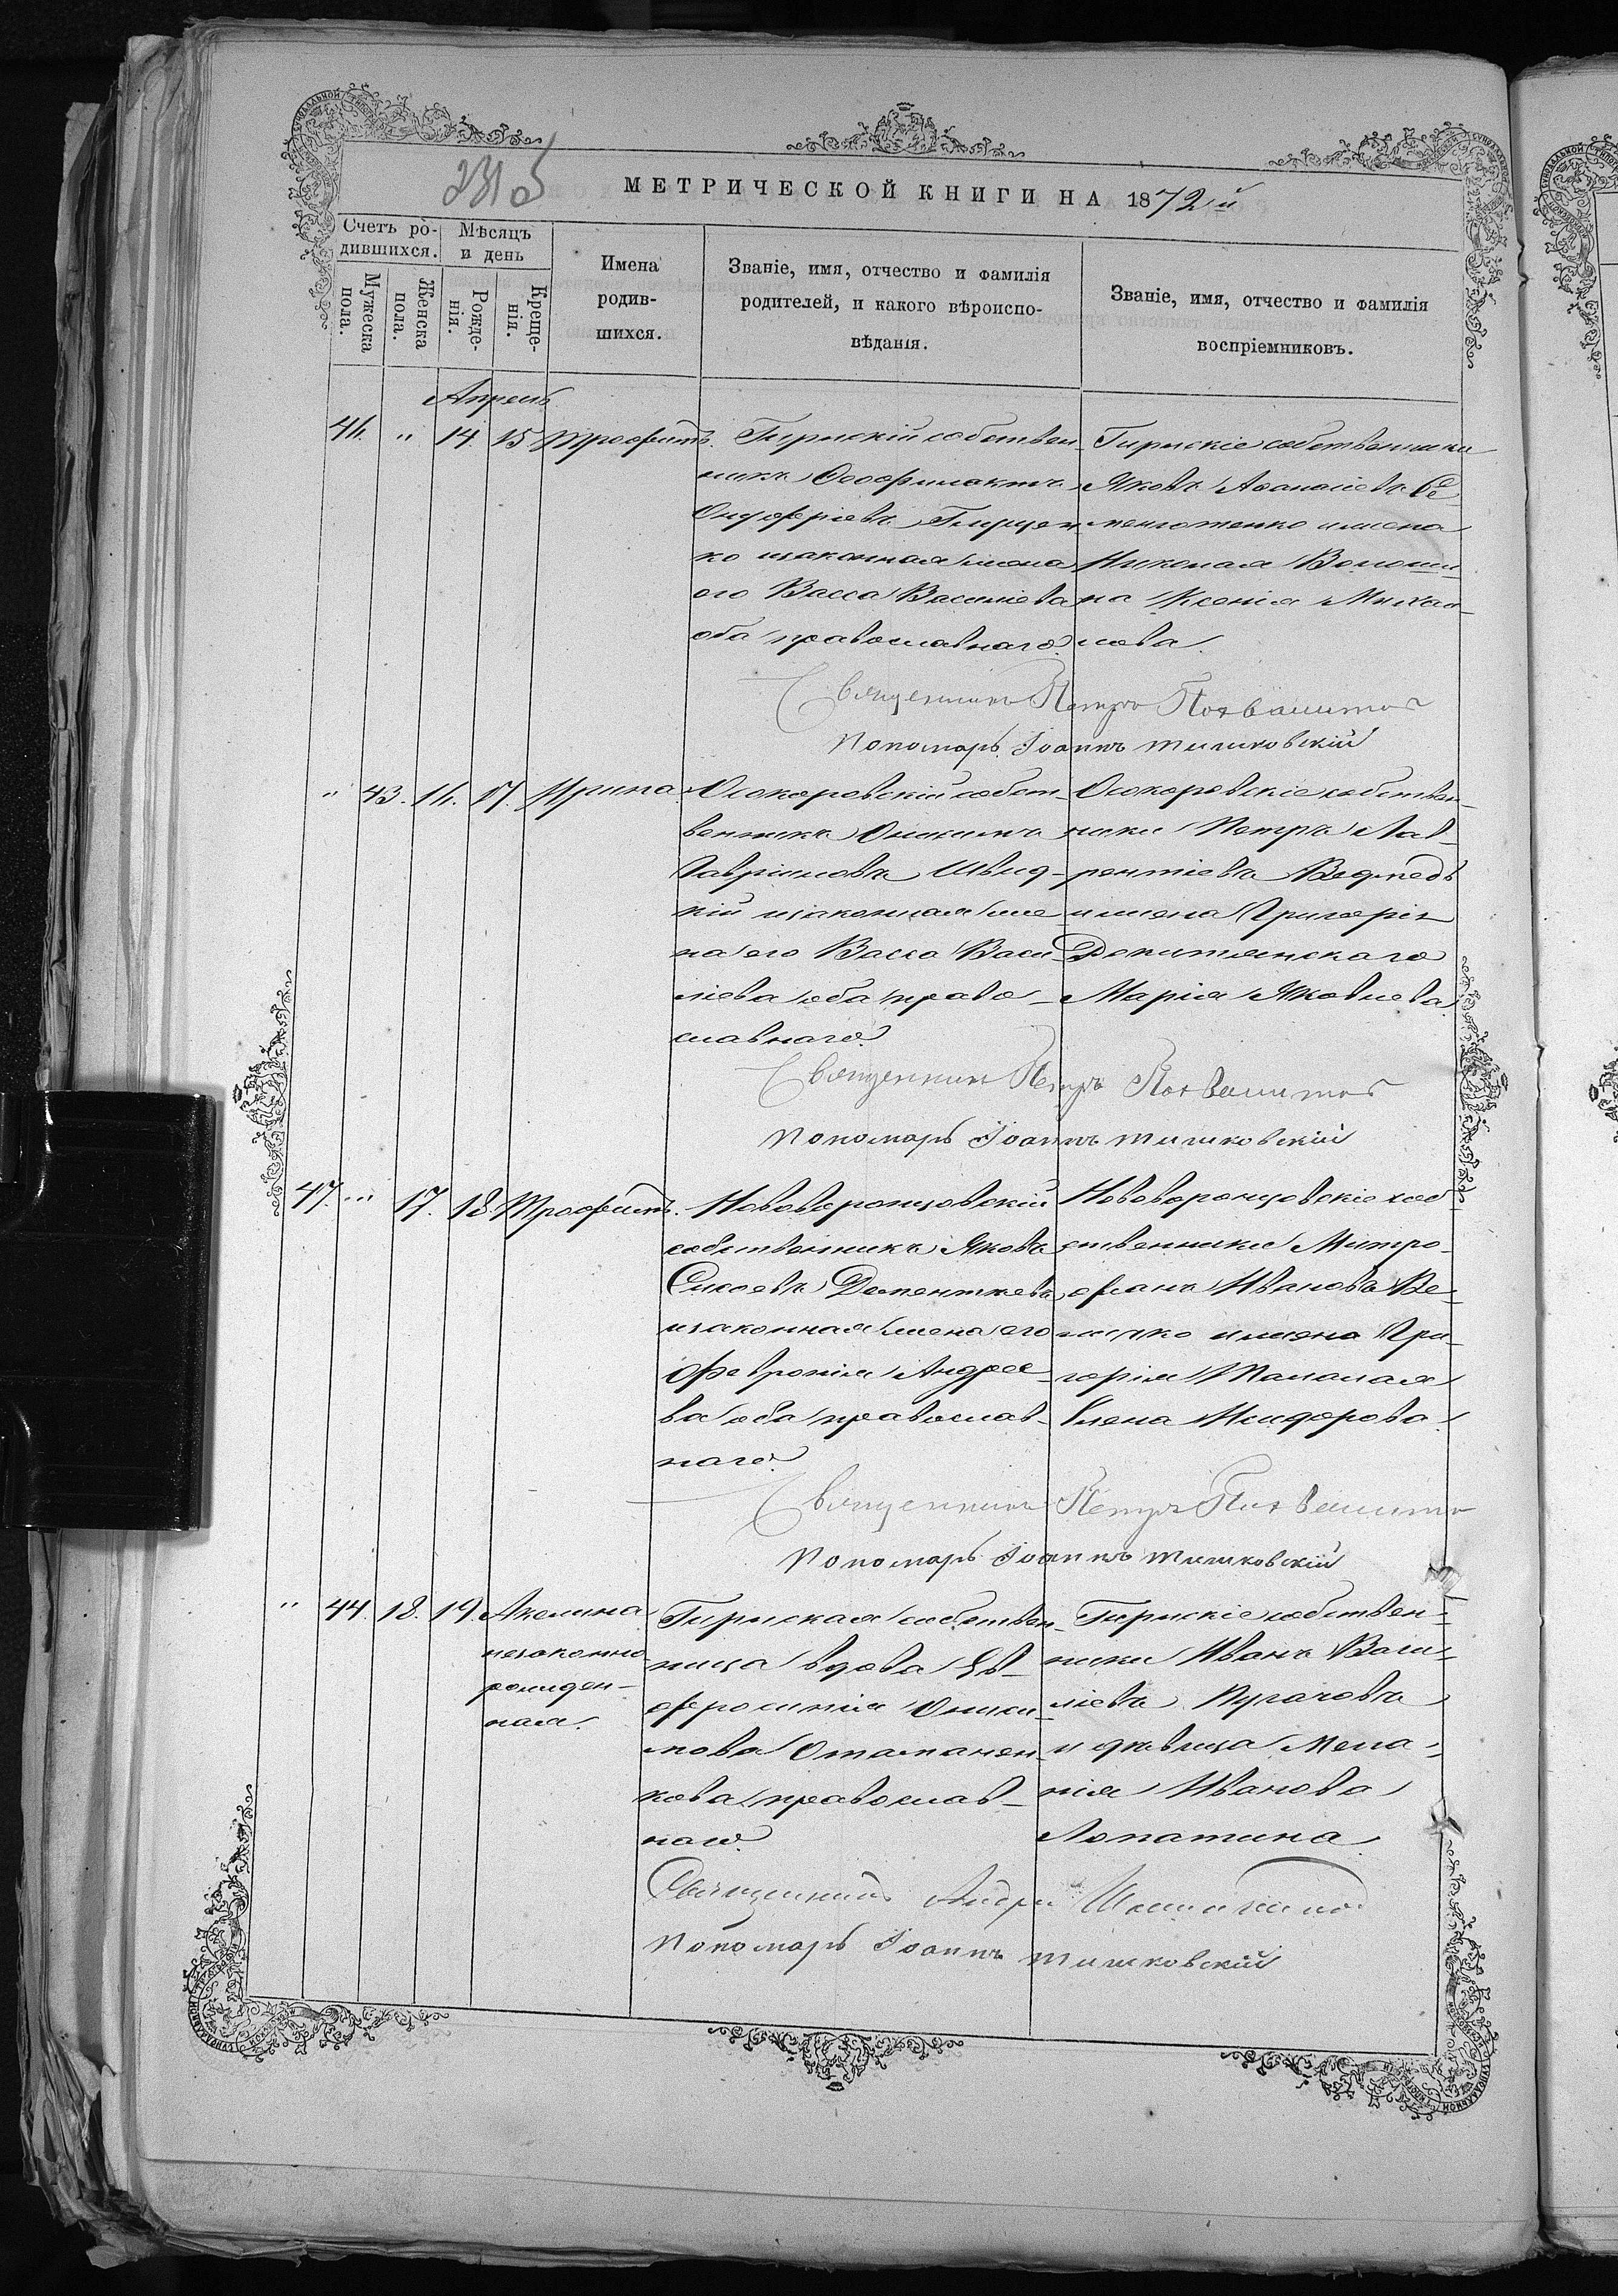 МЕТРИЧЕСКОЙ КНИГИ НА 1872й
Счетъ ро-
дившихся.
Мѣсяцъ
и день
Имена
родив-
шихся.
Званіе, имя, отчество и фамилія
родителей, и какого вѣроиспо-
вѣданія.
Званіе, имя, отчество и фамилія
воспріемниковъ.
Мужеска
пола.
Женска
пола.
Рожде-
нія.
Креще-
нія.
Апрель
46. " 14. 15 Трофимъ.
Гирискій собствен-
никъ Феофилактъ
Онуфріевъ Грицен
ко изаконная жена
его Васса Василіева
оба православнаго.
Гирискіе собственники
Яковъ Афанасіевъ Се
ижена
Николая Волоши-
на Ксенія Михай-
лова.
Священникъ Петръ
Пономарь Іоаннъ Тишковскій
" 43. 16. 17. Ирина.
Осокоровскій собст-
венникъ Онисимъ
Гавриловъ Швид-
кій изаконная же
на его Васса Васи-
ліева оба право-
славнаго.
Осокоровскіе собствен-
ники Петръ Лав-
рентіевъ Ведмедь
ижена Григорія
Марія Яковлева
Священникъ Петръ
Пономарь Іоаннъ Тишковскій
47. " 17. 18. Трофимъ.
Нововоронцовскій
собственникъ Яковъ
Сисоевъ Дементьевъ
изаконная жена его
Февронія Андрее-
ва оба православ-
наго.
Нововоронцовскіе соб
ственники Митро-
фанъ Ивановъ Ве-
личко ижена Гри-
горія Таламая
Елена Исидорова.
Священникъ Петръ
Пономарь Іоаннъ Тишковскій
" 44. 18. 19. Акелина
незаконно
рожден-
ная.
Гириская собствен-
ница вдова Ев-
фросинія Ониси-
мова Отаманен-
кова православ-
наго.
Гирискіе собствен-
ники Иванъ Васи-
ліевъ Пугачовъ
и дѣвица Мела-
нія Иванова
Лопатина.
Священникъ Андрей
Пономарь Іоаннъ Тишковскій